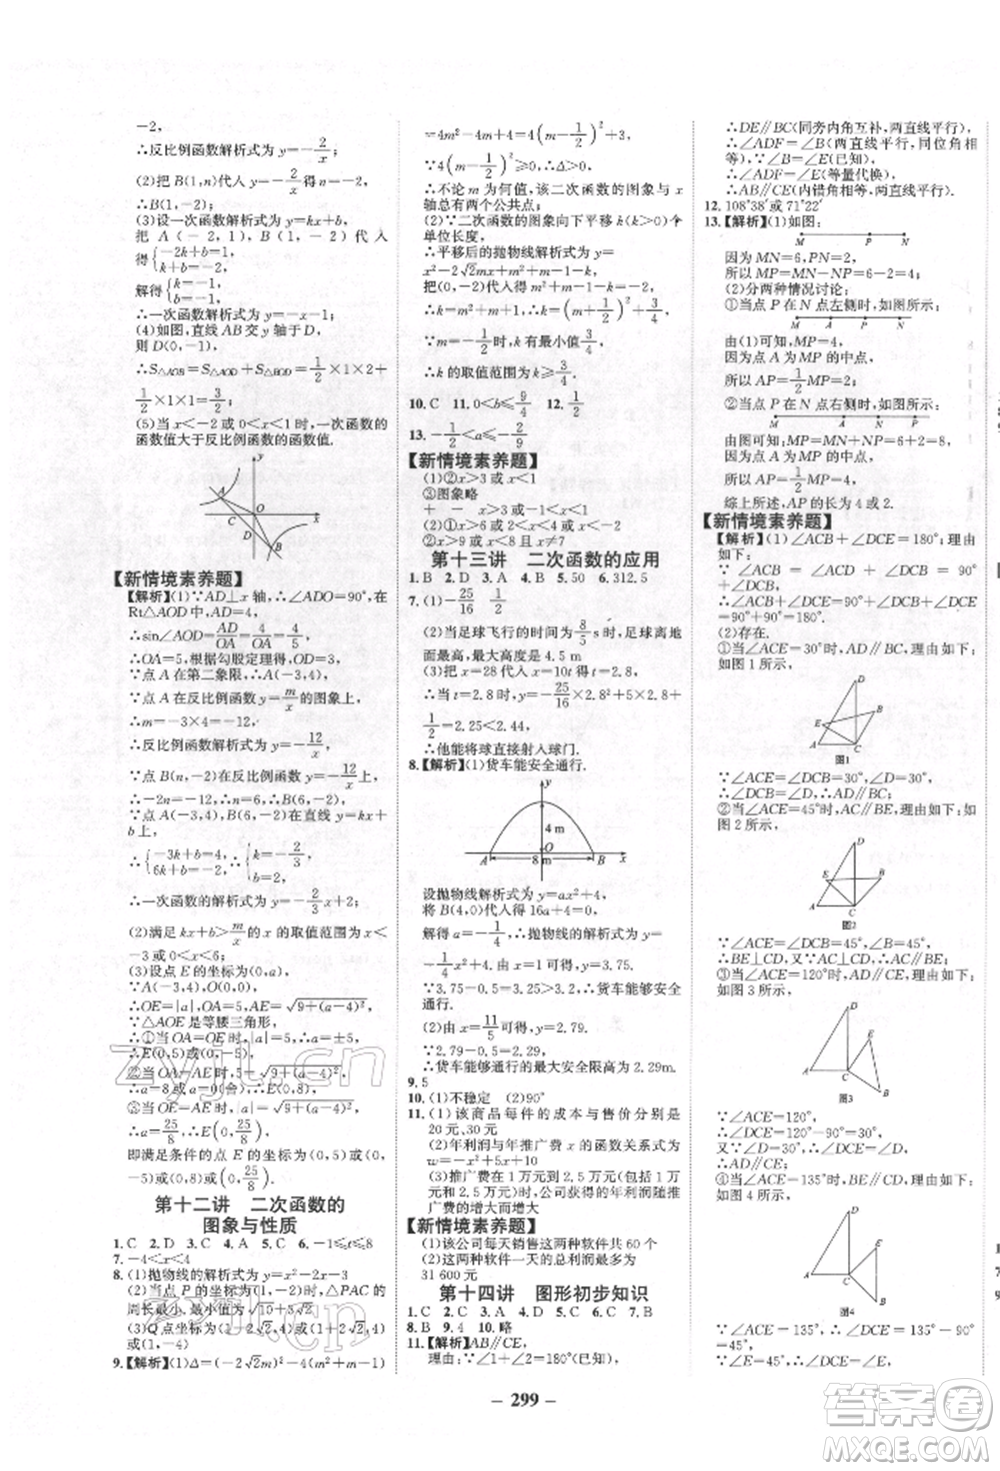 -2,
∴反比例函数解析式为 y=-2/x;
(2)把 B(1,n)代入 y=-2/x=-2,
∴B(1,-2).
(3)设一次函数解析式为 y=kx+b,
把 A(-2,1),B(1,-2) 代入
解得{k=-1, b=-1.
∴一次函数解析式为 y=-x-1;
(4)如图,直线 AB 交 y 轴于 D,
则 D(0,-1).
∴S△AOB=S△AOD+S△BOD=1/2×1×2+
1/2×1×1=3/2;
(5)当 x<-2或 0<x<1 时,一次函数的
函数值大于反比例函数的函数值.
A
C
O
D
B
x
y
【新情境素养题】
【解析】(1)∵AD⊥x 轴,∴∠ADO=90°,在
Rt△AOD 中,AD=4,
∴sin∠AOD=AD/OA=4/OA=4/5,
∴OA=5,根据勾股定理得,OD=3,
∵点 A 在第二象限,∴A(-3,4),
∵点 A 在反比例函数 y=m/x 的图象上,
∴m=-3×4=-12,
∴反比例函数解析式为 y=-12/x,
∵点 B(n,-2)在反比例函数 y=-12/x 上,
∴-2n=-12,∴n=6,∴B(6,-2),
∵点 A(-3,4),B(6,-2)在直线 y=kx
+b 上,
∴{-3k+b=4, 6k+b=-2, ∴{k=-2/3, b=2,
∴一次函数的解析式为 y=-2/3x+2;
(2)满足 kx+b>m/x 的 x 的取值范围为 x<
-3或 0<x<6;
(3)设点 E 的坐标为(0,a),
∵A(-3,4),O(0,0),
∴OE=|a|,OA=5,AE=√9+(a-4)²,
∵△AOE 是等腰三角形,
∴①当 OA=OE 时,|a|=5,∴a=±5,
∴E(0,5)或(0,-5),
②当 OA=AE 时,5=√9+(a-4)²,
∴a=8或 a=0(舍),∴E(0,8),
③当 OE=AE 时,|a|=√9+(a-4)²,
∴a=25/8,∴E(0,25/8),
即满足条件的点 E 的坐标为(0,5)或(0,
-5)或(0,8)或(0,25/8).
第十二讲 二次函数的
图象与性质
1.C 2.D 3.C 4.A 5.C 6.-1≤t≤8
7.-4<x<2
8.(1)抛物线的解析式为 y=x²-2x-3
(2)当点 P 的坐标为(1,-2)时,△PAC 的
9.【解析】(1)Δ=(-2√2m)²-4(m²+m-1)
=4m²-4m+4=4(m-1/2)²+3,
∵4(m-1/2)²≥0,∴Δ>0.
∴不论 m 为何值,该二次函数的图象与 x
轴总有两个公共点.
(2)∵二次函数的图象向下平移 k(k>0)个
单位长度,
∴平移后的抛物线的解析式为 y=
∴k 的取值范围 k≥3/4.
10.C 11.0<b≤9/4 12.1/2
【新情境素养题】
(1)②x>3 或 x<1
③图象略
(2)①-3<x<5
②x>7 或 x<8且 x≠7
第十三讲 二次函数的应用
1.B 2.D 3.A 4.B 5.50 6.312.5
7.(1)-25/16 1/2
(2)当足球飞行的时间为8/5 s时,足球离地
面最高,最大高度是 4.5 m
(3)把 x=28 代入 x=10t 得 t=2.8,
∴当 t=2.8 时,y=-25/16×2.8²+5×2.8+
1/2=2.25<2.44,
∴他能将球直接射入球门.
8.【解析】(1)货车能安全通行.
y
4 m
A
O
8 m
B
x
设抛物线解析式为 y=ax²+4,
将 B(4,0)代入得 16a+4=0,
解得 a=-1/4,∴抛物线的解析式为 y=
-1/4x²+4,当 x=1 时,y=3.75,
∵3.75-0.5=3.25>3,∴货车能够安全
通行.
(2)由 x=11/5可得,y=2.79.
∵2.79-0.5=2.29,
∴货车能够通行的最大安全限高为2.29m.
9.5
10.(1)不稳定 (2)90°
11.(1)该商品每件的成本与售价分别是
20 元、30 元
(2)年利润与年推广费 x 的函数关系式为
w=-10x²+50x+100
(3)推广费在 1 万元到 2.5 万元(包括 1 万
元和 2.5 万元)时,公司获得的年利润随推
广费的增大而增大
【新情境素养题】
(1)该公司每天销售这两种软件共 60 个
(2)这两种软件一天的总利润最多为
31 600元.
第十四讲 图形初步知识
1.C 2.C 3.A 4.D 5.C 6.C 7.B
8.B 9.4 10.略
11.【解析】AB∥CE,
理由:∵∠1+∠2=180°(已知),
∴DE∥BC(同旁内角互补,两直线平行),
∴∠ADF=∠B(两直线平行,同位角相
等),∵∠B=∠E(已知),
∴∠ADF=∠E(等量代换),
∴AB∥CE(内错角相等,两直线平行).
12.108°38′或 71°22′
13.【解析】(1)如图:
M P N
因为 MN=6,PN=2,
所以 MP=MN-PN=6-2=4;
(2)分两种情况讨论:
①当点 P 在 N 点左侧时,如图所示:
M A P N
由(1)可知,MP=4,
因为点 A 为 MP 的中点,
所以 AP=1/2MP=2;
②当点 P 在 N 点右侧时,如图所示:
M A N P
由图可知,MP=MN+PN=6+2=8;
因为点 A 为 MP 的中点,
所以 AP=1/2MP=4;
综上所述,AP 的长为 4或 2.
【新情境素养题】
【解析】(1)∠ACB+∠DCE=180°;理由
如下:
∵∠ACB=∠ACD+∠DCB=90°+
∠DCB,
∴∠ACB+∠DCE=90°+∠DCB+∠DCE
=90°+90°=180°.
(2)存在.
①当∠ACE=30°时,AD∥BC,理由如下:
如图 1 所示,
D
E
B
A
C
图1
∵∠ACE=∠DCB=30°,∠D=30°,
∴∠DCB=∠D,∴AD∥BC;
②当∠ACE=45°时,AC∥BE,理由如下:如
图 2 所示,
D
E
B
A
C
图2
∵∠ACE=∠DCB=45°,∠B=45°,
∴BE⊥CD,又∵AC⊥CD,∴AC∥BE;
③当∠ACE=120°时,AD∥CE,理由如下:
如图 3 所示,
D
E
A
C
B
图3
∵∠ACE=120°,
∴∠DCE=120°-90°=30°,
又∵∠D=30°,∴∠DCE=∠D,
∴AD∥CE;
④当∠ACE=135°时,BE∥CD,理由如下:
如图 4 所示,
D
E
A
C
B
图4
∵∠ACE=135°,∴∠DCE=135°-90°
=45°,
∵∠E=45°,∴∠DCE=∠E,
- 299 -
zyjl.cn
答案圈
MXQE.COM